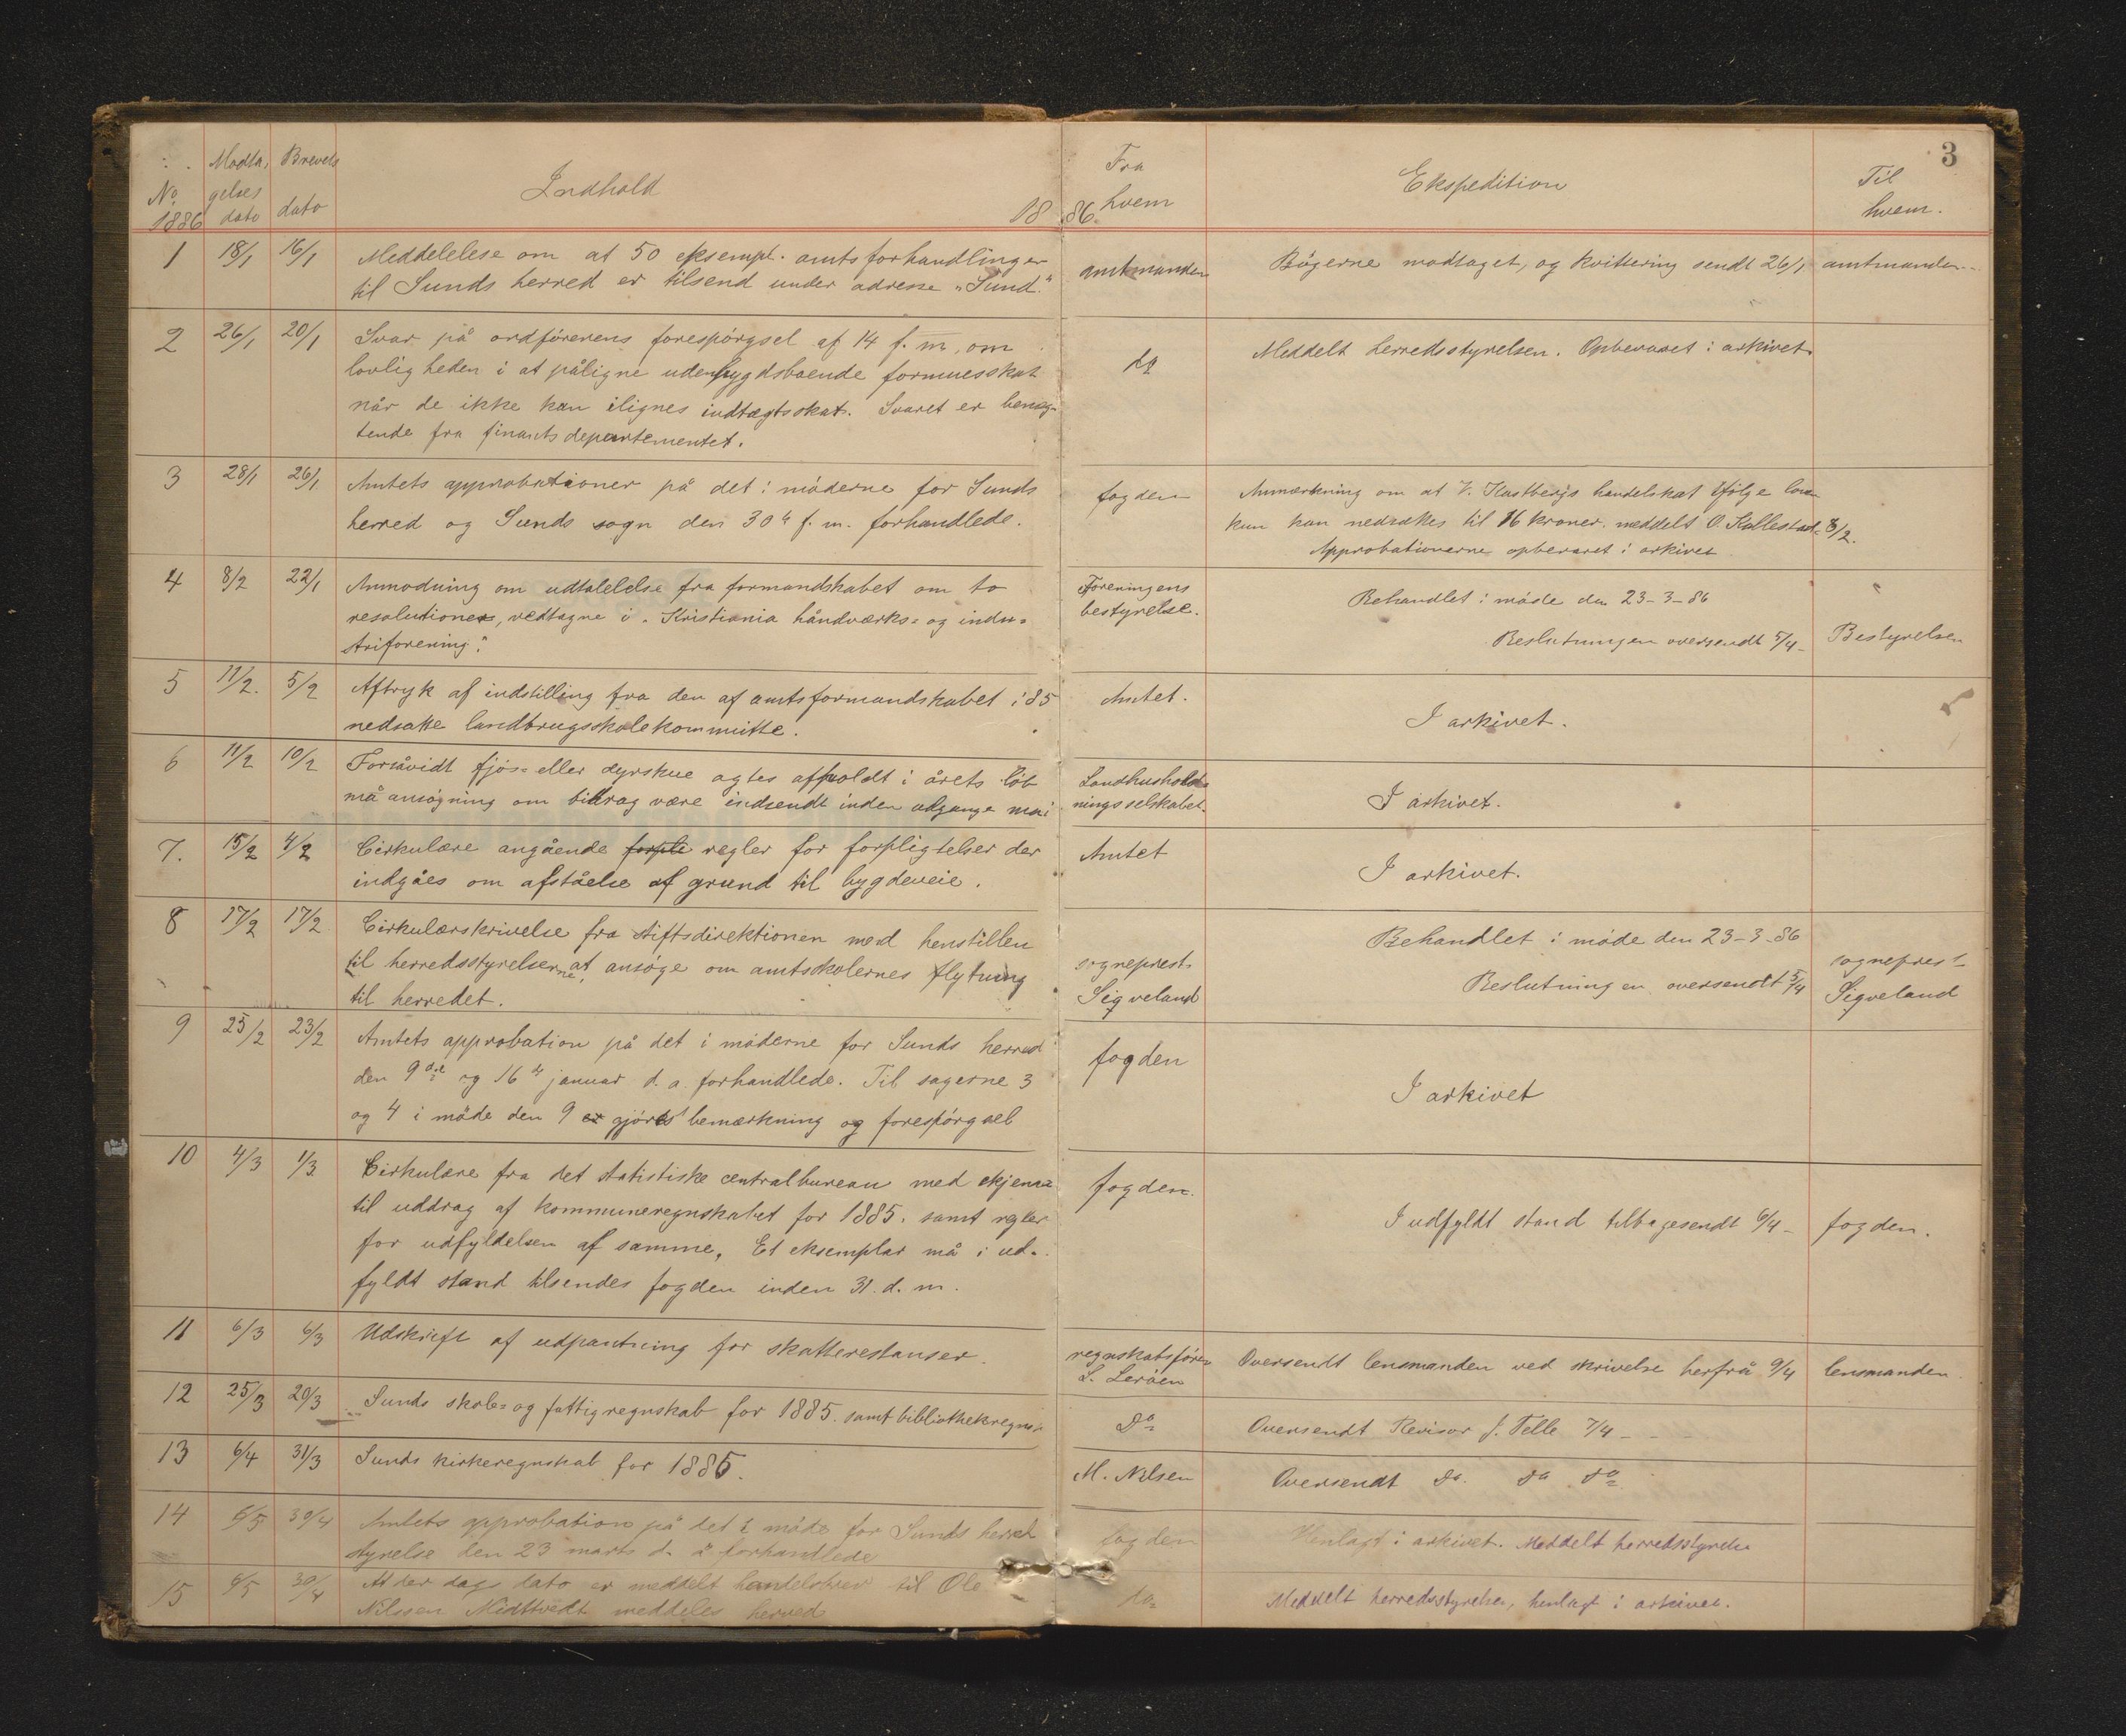 3
No. 1886 Modta, gelses dato Brevets dato Indhold 18 86. Fra hvem Ekspedition Til hvem.
1 18/1 16/1 Meddelelese om at 50 eksempl. amtsforhandlinger amtmanden Bögerne modtaget, og kvittering sendt 26/1 amtmanden
til Sunds herred er tilsend under adresse "Sund."
2 26/1 20/1 Svar på ordförerens forespörgsel af 14 f. m, om do Meddelt herredsstyrelsen. Opbevaret i arkivet
lovligheden i at påligne udenbygdsboende formuesskat
når de ikke kan ilignes indtægtsskat. Svaret er benæg-
tende fra finantsdepartementet.
3 28/1 26/1 Amtets approbationer på det i möderne for Sunds fogden Anmærkning om at V. Kastbergs handelskat ifölge lov
herred og Sunds sogn den 30te f. m. forhandlede. kun kan nedsættes til 16 kroner. meddelt O. Kallestad 8/2.
Approbationerne opbevaret i arkivet
4 8/2 22/1 Anmodning om udtalelelse fra formandskabet om to Foreningens bestyrelse. Behandlet i möde den 23-3-86
resolutioner, vedtagne i "Kristiania håndværks= og indu= Beslutningen oversendt 5/4 - Bestyrelsen
striforening".
5 11/2. 5/2 Aftryk af indstilling fra den af amtsformandskabet i 85 Amtet. I arkivet.
nedsatte landbrugsskolekommitte.
6 11/2 10/2 Forsåvidt fjös= eller dyrskue agtes afholdt i årets löb Landhushold= ningsselskabet I arkivet.
må ansögning om bidrag være indsendt inden udgange mai
7. 15/2 4/2 Cirkulære angående forpli regler for forpligtelser der Amtet I arkivet.
indgåes om afståelse af grund til bygdeveie.
8 17/2 17/2 Cirkulærskrivelse fra stiftsdirektionen med henstillen sogneprest Sigveland Behandlet i möde den 23-3-86 sogneprest Sigveland
til herredsstyrelserne, at ansöge om amtsskolernes flytning Beslutningen oversendt 5/4
til herredet.
9 25/2 23/2 Amtets approbation på det i möderne for Sunds herred fogden I arkivet
den 9de og 16de januar d. a. forhandlede. Til sagerne 3
og 4 i möde den 9 er gjöres bemærkning og forespörgsel
10 4/3 1/3 Cirkulære fra det statistiske centralbureau med skjema fogden. I udfyldt stand tilbagesendt 6/4 - fogden.
til uddrag af kommuneregnskabet for 1885. samt regler
for udfyldelsen af samme. Et eksemplar må i ud=
fyldt stand tilsendes fogden inden 31. d. m.
11 6/3 6/3 Udskrift af udpantning for skatterestanser. regnskabsförer L. Leröen Oversendt lensmanden ved skrivelse herfrå 9/4 lensmanden.
12 25/3 20/3 Sunds skole= og fattigregnskab for 1885. samt bibliothekregns. Do Oversendt Revisor J. Telle 7/4 -
13 6/4 31/3 Sunds kirkeregnskab for 1885. M. Nilsen Oversendt do. do do
14 6/5 30/4 Amtets approbation på det i möde for Sunds herreds fogden Henlagt i arkivet. Meddelt herredsstyrelse
styrelse den 23 marts d. å forhandlede
15 6/5 30/4 At der dags dato er meddelt handelsbrev til Ole do Meddelt herredsstyrelsen, henlagt i arkivet.
Nilssen Midttvedt meddeles herved